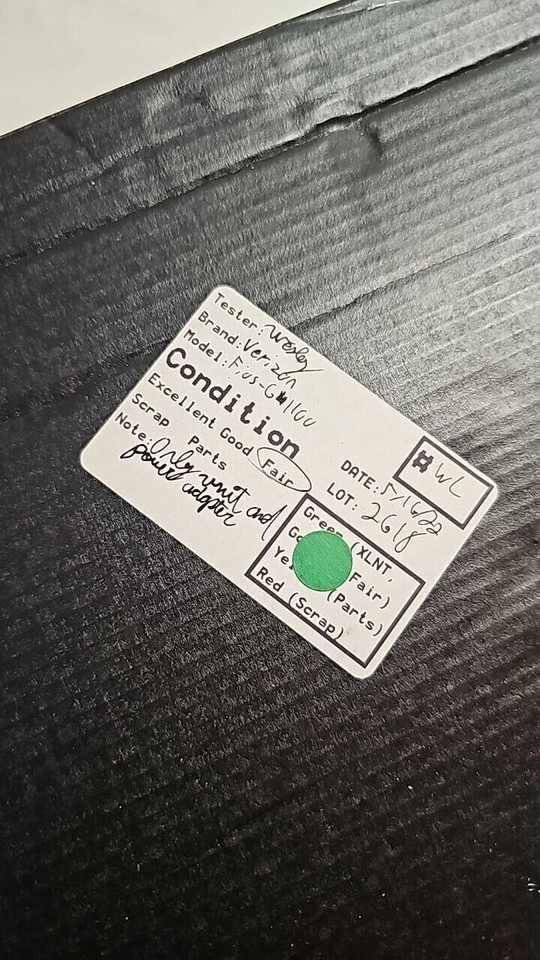 Tester: Wesley
Brand: Verizon
Model: Fios-G1100
Condition
Excellent Good Fair
Scrap Parts
Note: Only unit and
power adapter
# WL
DATE: 5/16/22
LOT: 2618
Green (XLNT,
Fair)
(Parts)
Red (Scrap)